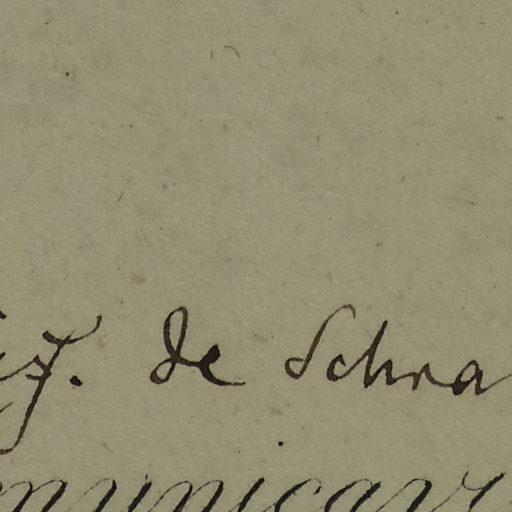 de Schra
municav